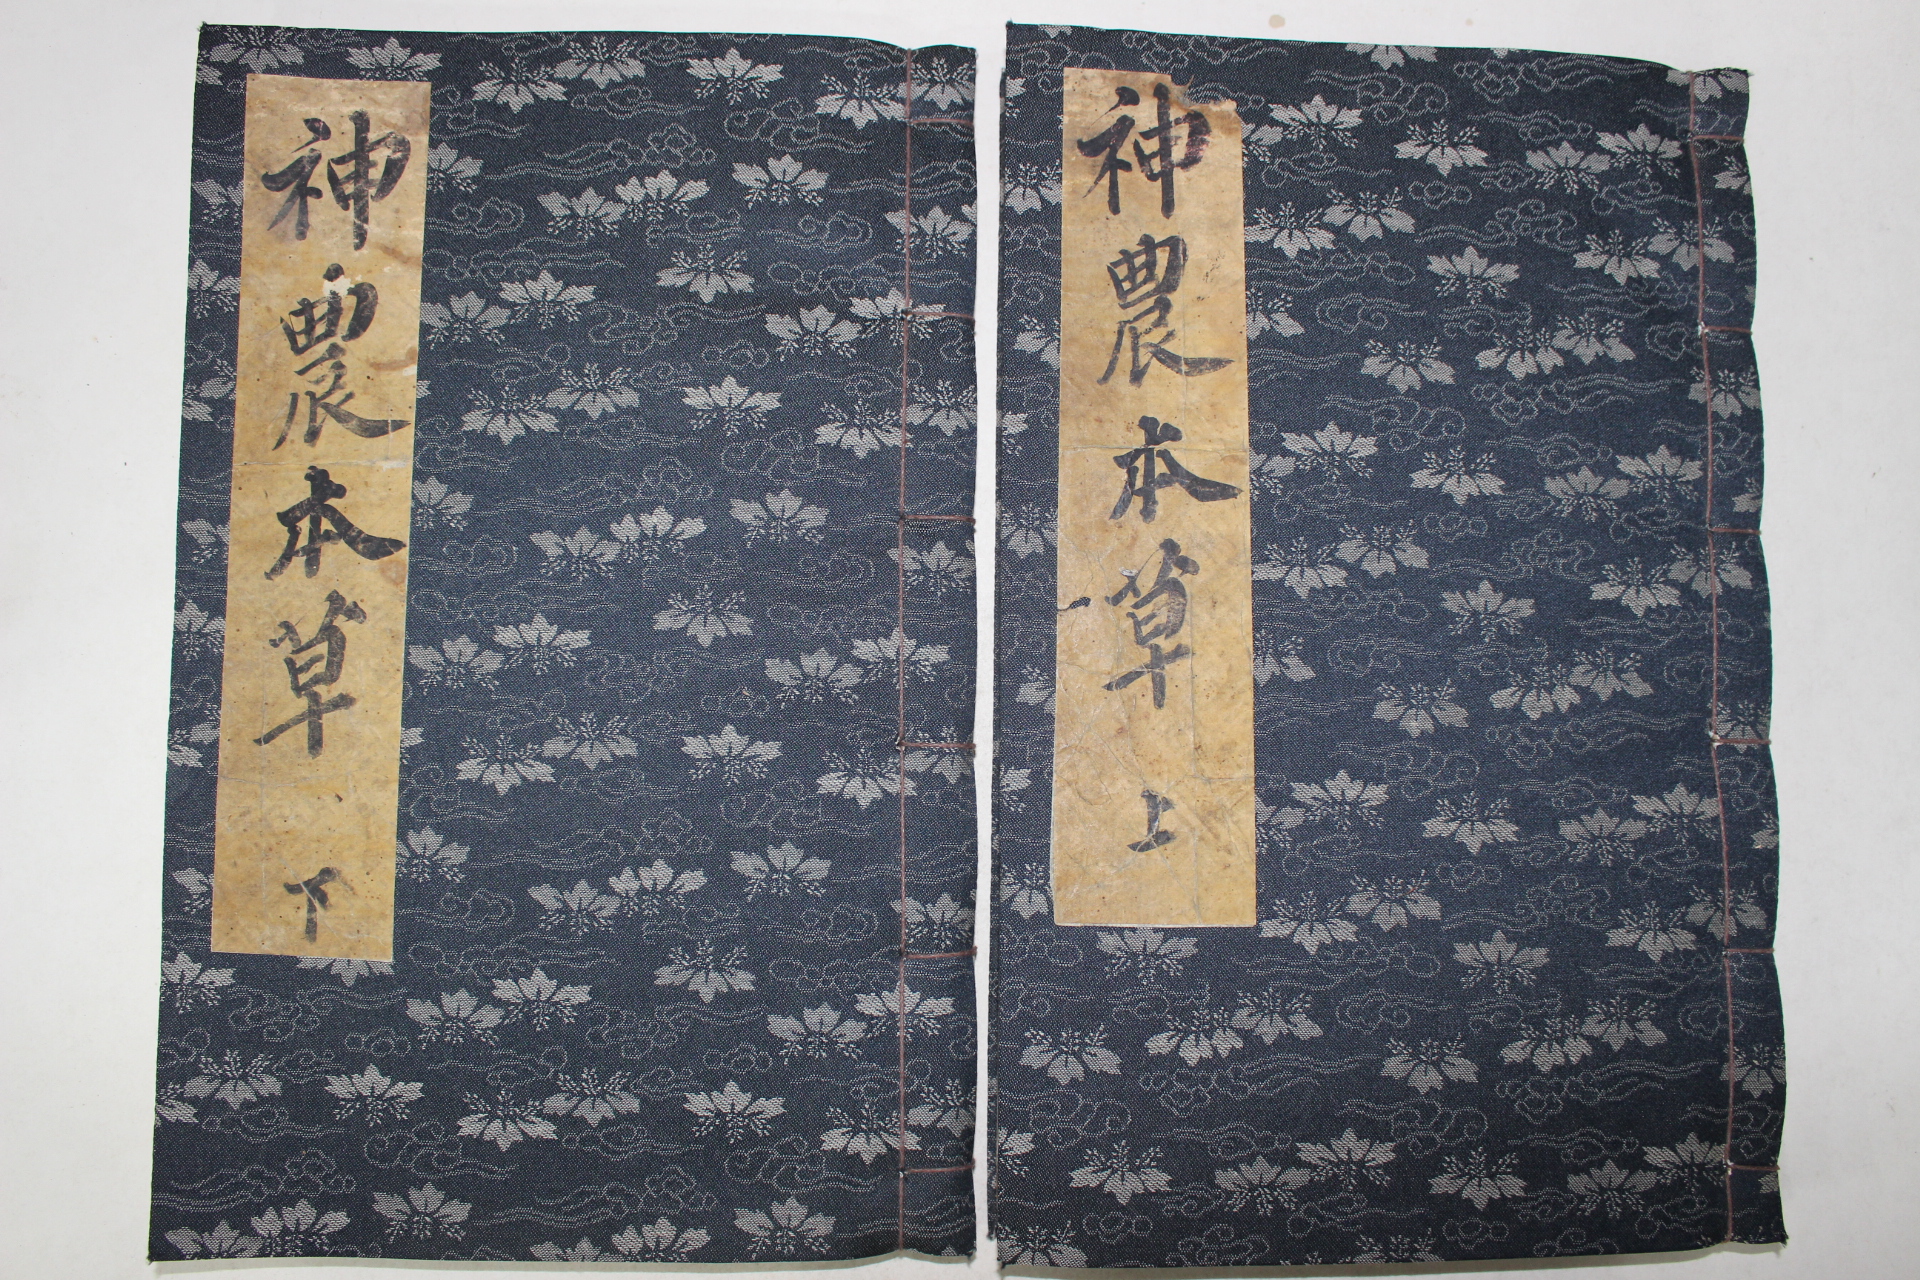 神農本草 上
神農本草 下